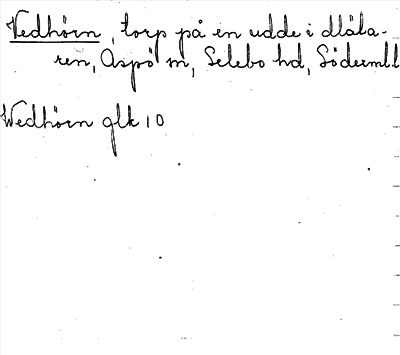 Vedhörn, torp på en udde i Mäla-
ren, Aspö sn, Selebo hd, Söderml
Wedhörn glk 10